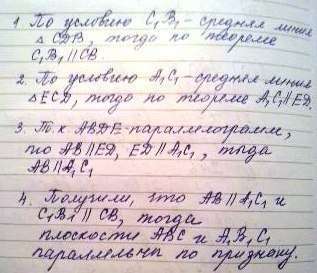 1. По условию C₁B₁ - средняя линия
△ CDB, тогда по теореме
C₁B₁ || CB.
2. По условию A₁C₁ - средняя линия
△ECD, тогда по теореме A₁C₁ || ED.
3. Т.к ABDE - параллелограмм,
то AB || ED, ED || A₁C₁, тогда
AB || A₁C₁
4. Получили, что AB || A₁C₁ и
C₁B₁ || CB, тогда
плоскости ABC и A₁B₁C₁
параллельны по признаку.